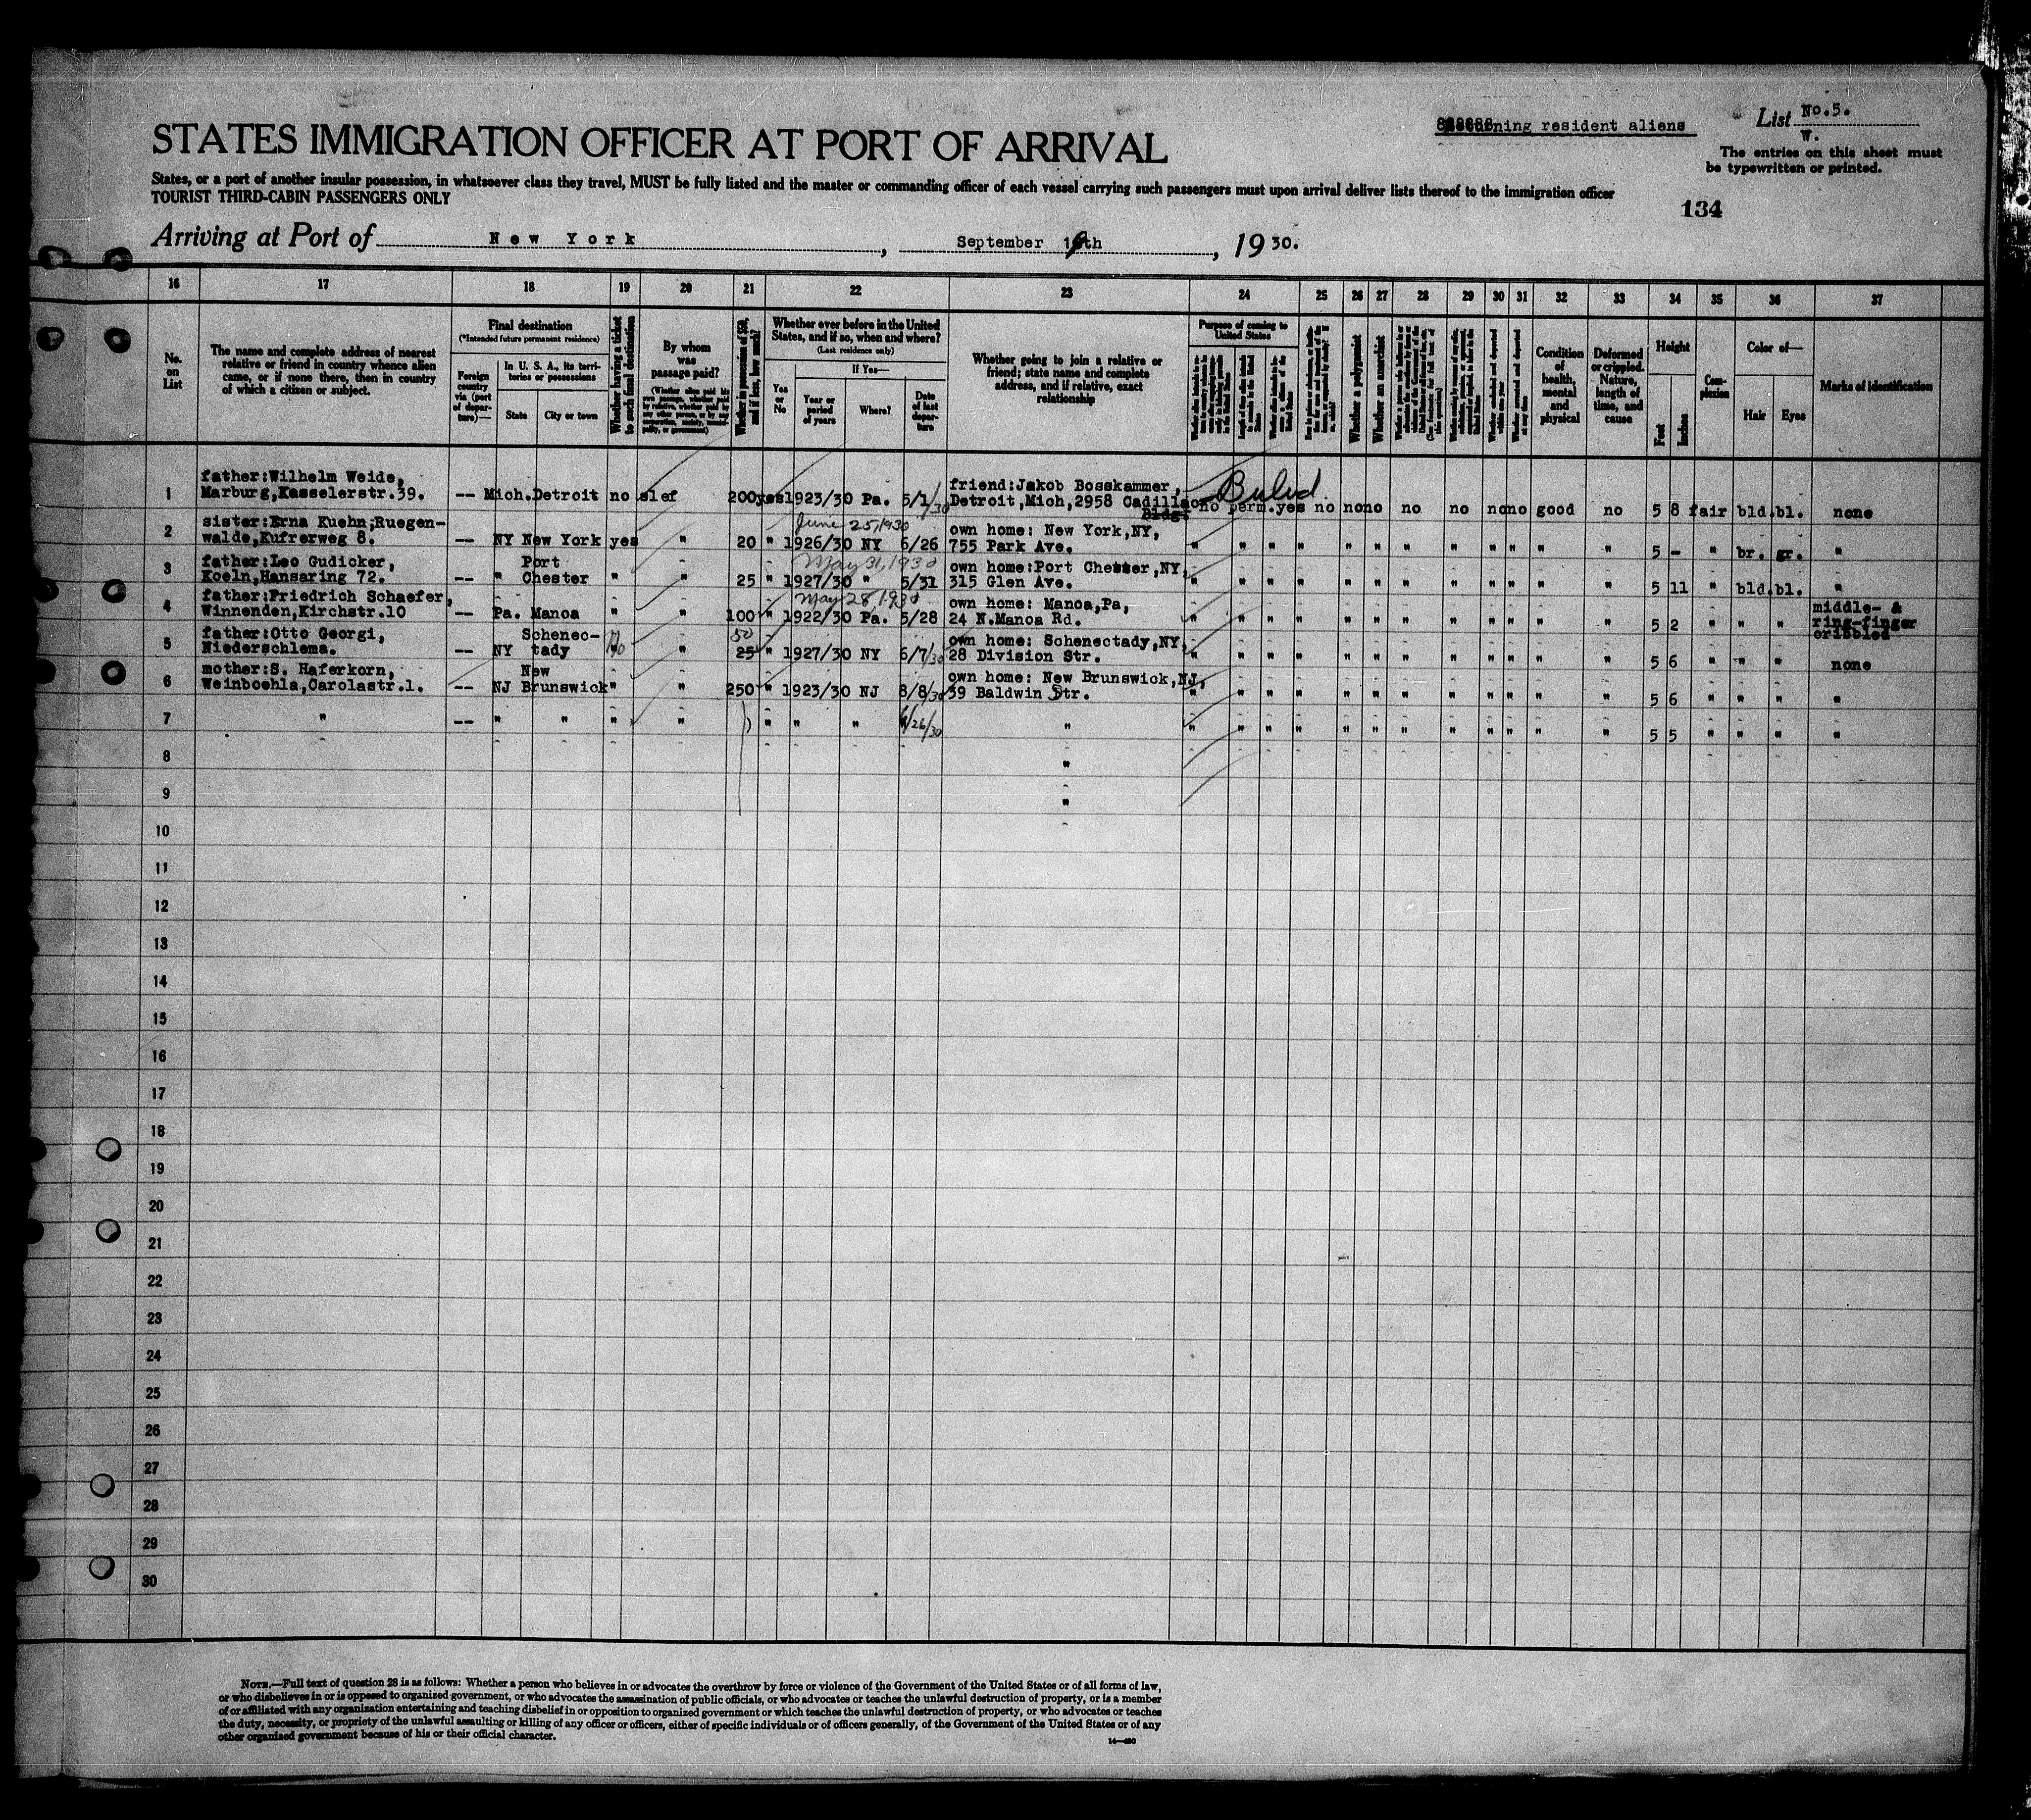 returning resident aliens
List No.5.
W.
The entries on this sheet must
be typewritten or printed.
STATES IMMIGRATION OFFICER AT PORT OF ARRIVAL
States, or a port of another insular possession, in whatsoever class they travel, MUST be fully listed and the master or commanding officer of each vessel carrying such passengers must upon arrival deliver lists thereof to the immigration officer
TOURIST THIRD-CABIN PASSENGERS ONLY
134
Arriving at Port of New York, September th, 1930.
16 17 18 19 20 21 22 23 24 25 26 27 28 29 30 31 32 33 34 35 36 37
No. on List
The name and complete address of nearest
relative or friend in country whence alien
came, or if none there, then in country
of which a citizen or subject.
Final destination
(*Intended future permanent residence)
Foreign country via (port of departure)—
In U. S. A., its territories or possessions
State
City or town
Whether having a ticket to such final destination
By whom was passage paid?
(Whether alien paid his own passage, whether paid by relative, whether paid by any other person, or by any corporation, society, municipality, or government)
Whether in possession of $50, and if less, how much?
Whether ever before in the United
States, and if so, when and where?
(Last residence only)
If Yes—
Yes or No
Year or period of years
Where?
Date of last departure
Whether going to join a relative or
friend; state name and complete
address, and if relative, exact
relationship
Purpose of coming to
United States
Whether a polygamist
Whether an anarchist
Condition of health, mental and physical
Deformed or crippled. Nature, length of time, and cause
Height
Feet
Inches
Complexion
Color of—
Hair
Eyes
Marks of identification
father:Wilhelm Weide, friend:Jakob Bosskammer,
1 Marburg,Kasselerstr.39. -- Mich. Detroit no slef 200 yes 1923/30 Pa. 5/1/30 Detroit,Mich,2958 Cadillac
Bldg. no perm. yes no no no no no no no good no 5 8 fair bld. bl. none
sister:Erna Kuehn,Ruegen- June 25,1930 own home: New York,NY,
2 walde,Kufrerweg 8. -- NY New York yes " 20 " 1926/30 NY 6/26 755 Park Ave. " " " " " " " " " " " " 5 - " br. gr. "
father:Leo Gudicker, Port May 31,1930 own home:Port Chester,NY,
3 Koeln,Hansaring 72. -- " Chester " " 25 " 1927/30 " 5/31 315 Glen Ave. " " " " " " " " " " " " 5 11 " bld. bl. "
father:Friedrich Schaefer, May 28,1930 own home: Manoa,Pa,
4 Winnenden,Kirchstr.10 -- Pa. Manoa " " 100 " 1922/30 Pa. 5/28 24 N.Manoa Rd. " " " " " " " " " " " " 5 2 " " " middle- &
ring-finger
cribbled
father:Otto Georgi, Schenec- 50 own home: Schenectady,NY,
5 Niederschlema. -- NY tady no " 25 " 1927/30 NY 6/7/30 28 Division Str. " " " " " " " " " " " " 5 6 " " " none
mother:S. Haferkorn, New own home: New Brunswick,NJ,
6 Weinboehla,Carolastr.1. -- NJ Brunswick " " 250 " 1923/30 NJ 8/8/30 39 Baldwin Str. " " " " " " " " " " " " 5 6 " " " "
7 " -- " " " " " " " 6/26/30 " " " " " " " " " " " " " 5 5 " " " "
8 "
9 "
10
11
12
13
14
15
16
17
18
19
20
21
22
23
24
25
26
27
28
29
30
NOTE.—Full text of question 28 is as follows: Whether a person who believes in or advocates the overthrow by force or violence of the Government of the United States or of all forms of law,
or who disbelieves in or is opposed to organized government, or who advocates the assassination of public officials, or who advocates or teaches the unlawful destruction of property, or is a member
of or affiliated with any organization entertaining and teaching disbelief in or opposition to organized government or which teaches the unlawful destruction of property, or who advocates or teaches
the duty, necessity, or propriety of the unlawful assaulting or killing of any officer or officers, either of specific individuals or of officers generally, of the Government of the United States or of any
other organized government because of his or their official character.
14—430